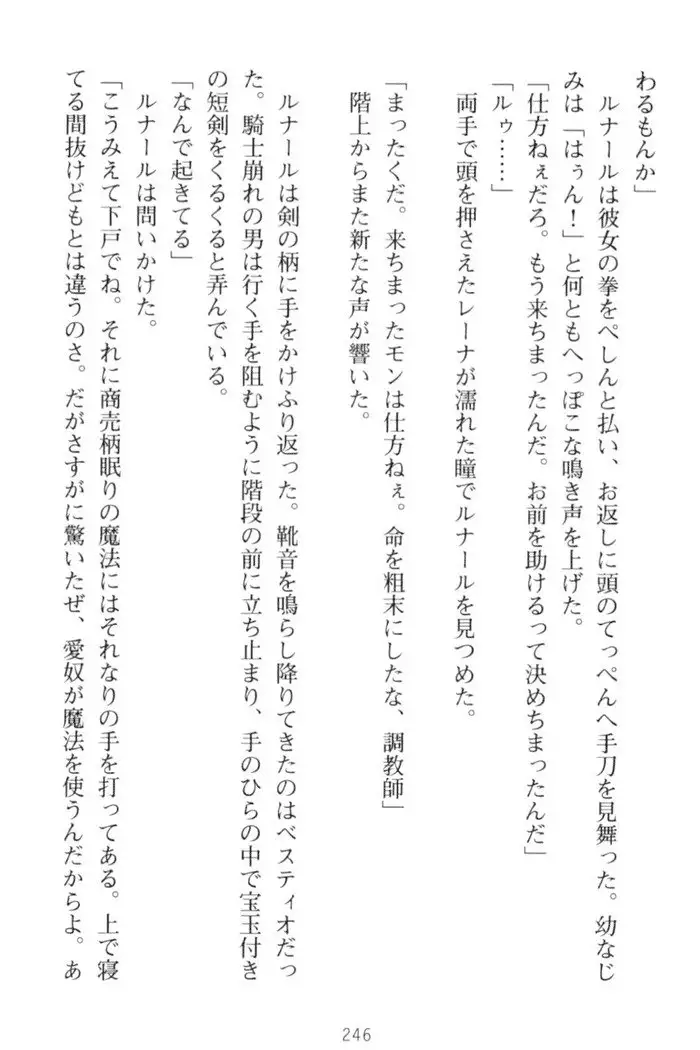 わるもんか」
　ルナールは彼女の拳をぺしんと払い、お返しに頭のてっぺんへ手刀を見舞った。幼なじ
みは「はぅん！」と何ともへっぽこな鳴き声を上げた。
「仕方ねぇだろ。もう来ちまったんだ。お前を助けるって決めちまったんだ」
「ルゥ……」
　両手で頭を押さえたレーナが濡れた瞳でルナールを見つめた。
「まったくだ。来ちまったモンは仕方ねぇ。命を粗末にしたな、調教師」
　階上からまた新たな声が響いた。
　ルナールは剣の柄に手をかけふり返った。靴音を鳴らし降りてきたのはベスティオだっ
た。騎士崩れの男は行く手を阻むように階段の前に立ち止まり、手のひらの中で宝玉付き
の短剣をくるくると弄んでいる。
「なんで起きてる」
　ルナールは問いかけた。
「こうみえて下戸でね。それに商売柄眠りの魔法にはそれなりの手を打ってある。上で寝
てる間抜けどもとは違うのさ。だがさすがに驚いたぜ、愛奴が魔法を使うんだからよ。あ
246